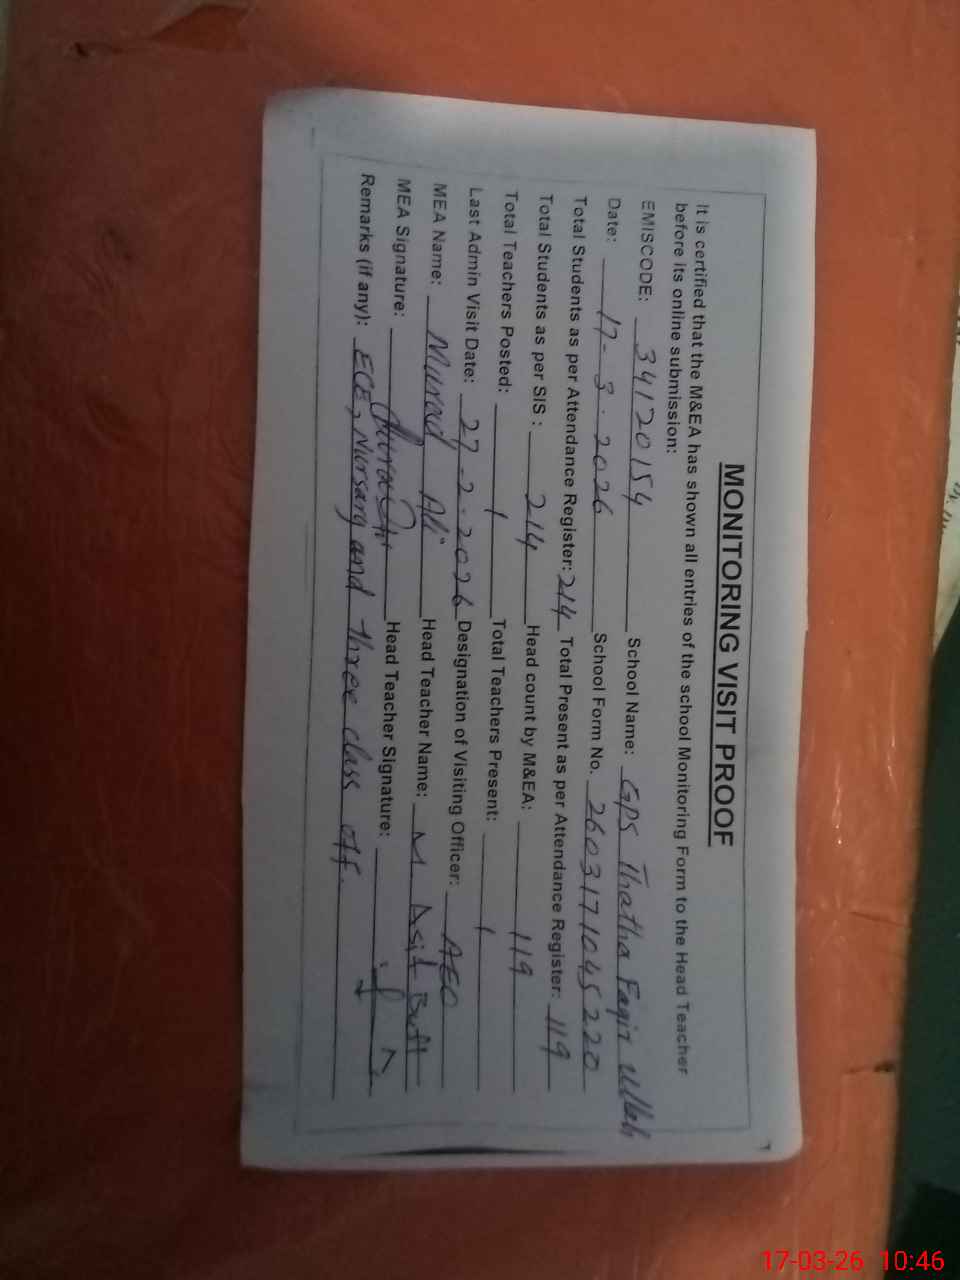 MONITORING VISIT PROOF
It is certified that the M&EA has shown all entries of the school Monitoring Form to the Head Teacher
before its online submission:
EMISCODE: 34120154 School Name: GPS Thatha Faqir Ullah
Date: 17-3-2026 School Form No. 2603171045220
Total Students as per Attendance Register: 214 Total Present as per Attendance Register: 119
Total Students as per SIS : 214 Head count by M&EA: 119
Total Teachers Posted: 1 Total Teachers Present: 1
Last Admin Visit Date: 27-2-2026 Designation of Visiting Officer: AEO
MEA Name: Murad Ali Head Teacher Name: M Asif Butt
MEA Signature: Head Teacher Signature:
Remarks (if any): ECE, Nursary and three class off.
17-03-26 10:46